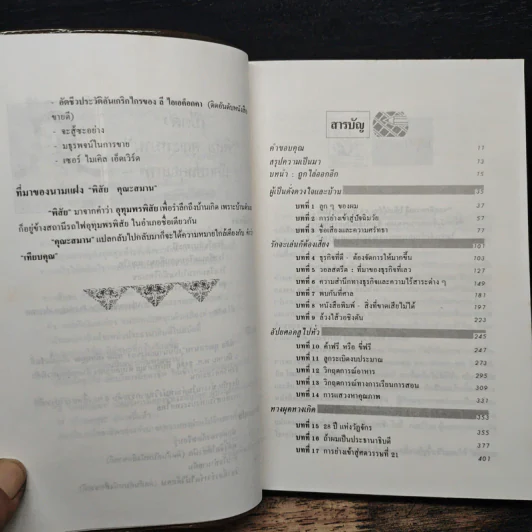 - อัตชีวประวัติอันเกริกไกรของ ลี ไอเอคอคคา (ติดอันดับหนังสือ
ขายดี)
- จะสู้ซะอย่าง
- มธุรพจน์ในการขาย
- เซอร์ ไมเคิล เอ็ดเวิร์ด
ที่มาของนามแฝง "พิสัย คุณะสมาน"
"พิสัย" มาจากคำว่า อุทุมพรพิสัย เพื่อรำลึกถึงบ้านเกิด เพราะบ้านเดิม
ก็อยู่ข้างสถานีรถไฟอุทุมพรพิสัย ในอำเภอชื่อเดียวกัน
"คุณะสมาน" แปลกลับไปกลับมาก็จะได้ความหมายใกล้เคียงกับ คำว่า
"เทียบคุณ"
สารบัญ
คำขอบคุณ 11
สรุปความเป็นมา 12
บทนำ : ถูกไล่ออกอีก 15
ผู้เป็นดั่งดวงใจและบ้าน
บทที่ 1 ลูก ๆ ของผม 27
บทที่ 2 การย่างเข้าสู่ปัจฉิมวัย 57
บทที่ 3 ชื่อเสียงและความศรัทธา 77
รักจะเล่นก็ต้องเสี่ยง 101
บทที่ 4 ธุรกิจที่ดี - ต้องจัดการให้มากขึ้น 103
บทที่ 5 วอลสตรีต : ที่มาของธุรกิจที่เลว 127
บทที่ 6 ความสำนึกทางธุรกิจและความไร้สาระต่าง ๆ 149
บทที่ 7 พบกันที่ศาล 181
บทที่ 8 หนังสือพิมพ์ - สิ่งที่ขาดเสียไม่ได้ 197
บทที่ 9 ล้วงไส้วอชิงตัน 223
245
บทที่ 10 ค้าฟรี หรือ ขี้ฟรี 247
บทที่ 11 ลูกระเบิดงบประมาณ 273
บทที่ 12 วิกฤตการณ์อาหาร 295
บทที่ 13 วิกฤตการณ์ทางการเรียนการสอน 309
บทที่ 14 การแสวงหาคุณภาพ 331
ทางผุดทางเกิด 353
บทที่ 15 25 ปี แห่งวัฏจักร 355
บทที่ 16 ถ้าผมเป็นประธานาธิบดี 377
บทที่ 17 การย่างเข้าสู่ศตวรรษที่ 21 401